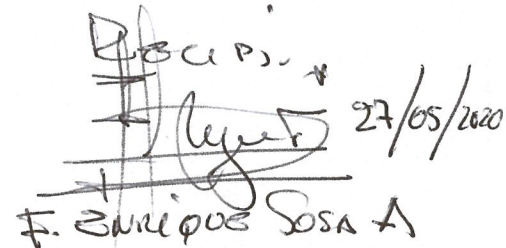 Recibí
27/05/2020
F. ENRIQUE SOSA A